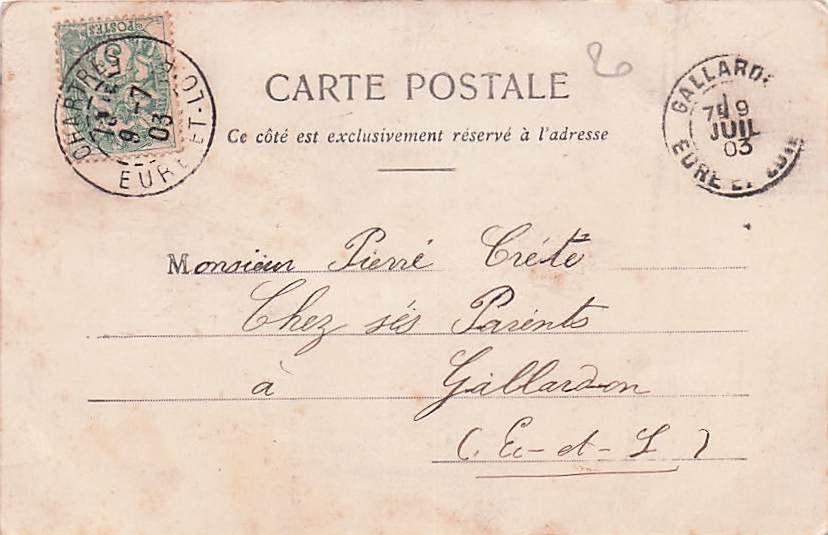 POSTES
CHARTRES
9 -7
03
EURE-ET-LOIR
CARTE POSTALE
Ce côté est exclusivement réservé à l'adresse
GALLARD
9
JUIL
03
EURE ET LOIR
Monsieur Pierré Créte
Chez sés Parénts
à Gallardon
(E-et-L)